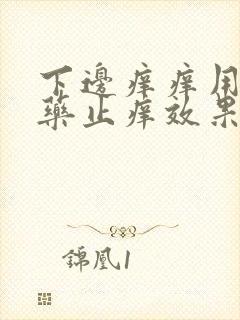 下邊痒痒用
藥止痒效果
錦凰1